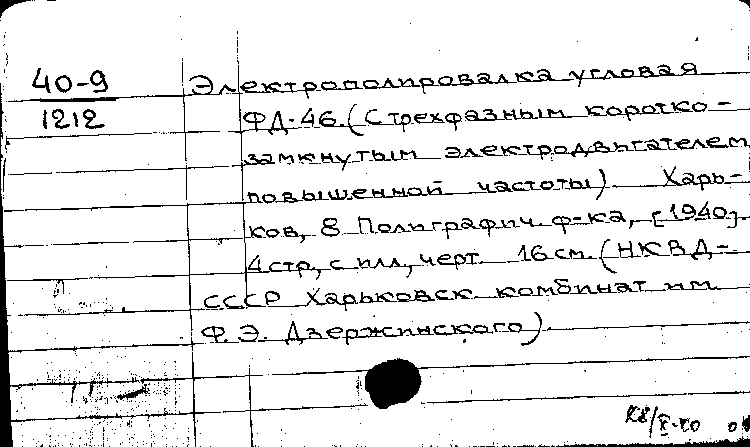 40-9
1212
Электрополировалка угловая
ФД-46. (С трехфазным коротко-
замкнутым электродвигателем
повышенной частоты). Харь-
ков, 8 Полиграфич. ф-ка, [1940].
4 стр., с илл., черт. 16 см. (НКВД-
СССР Харьковск. комбинат им.
Ф. Э. Дзержинского).